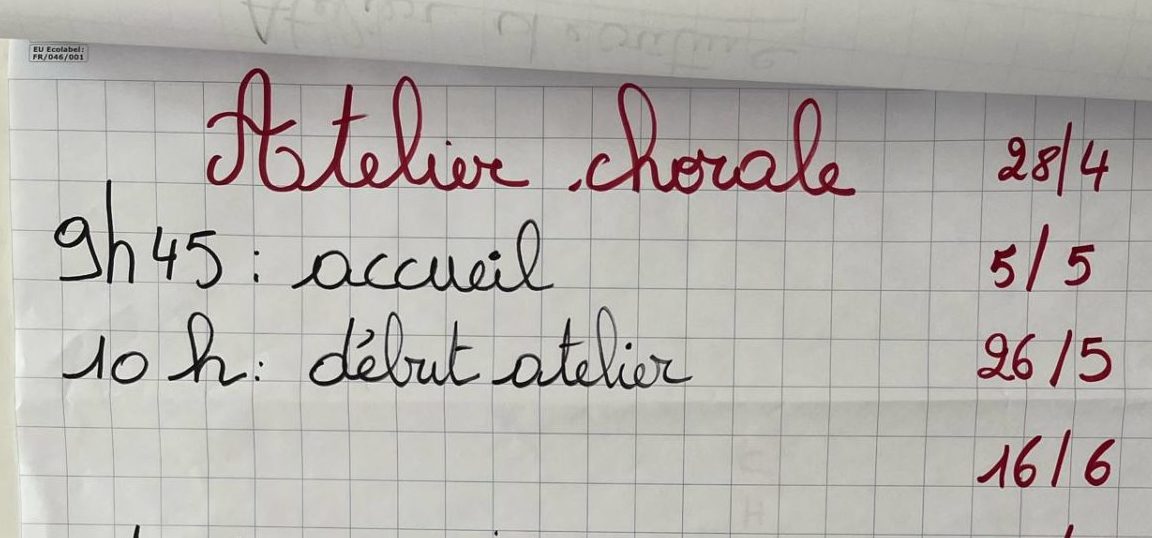 EU Ecolabel:
FR/046/001
Atelier chorale 28/4
9h45 : accueil 5/5
10 h : début atelier 26/5
16/6